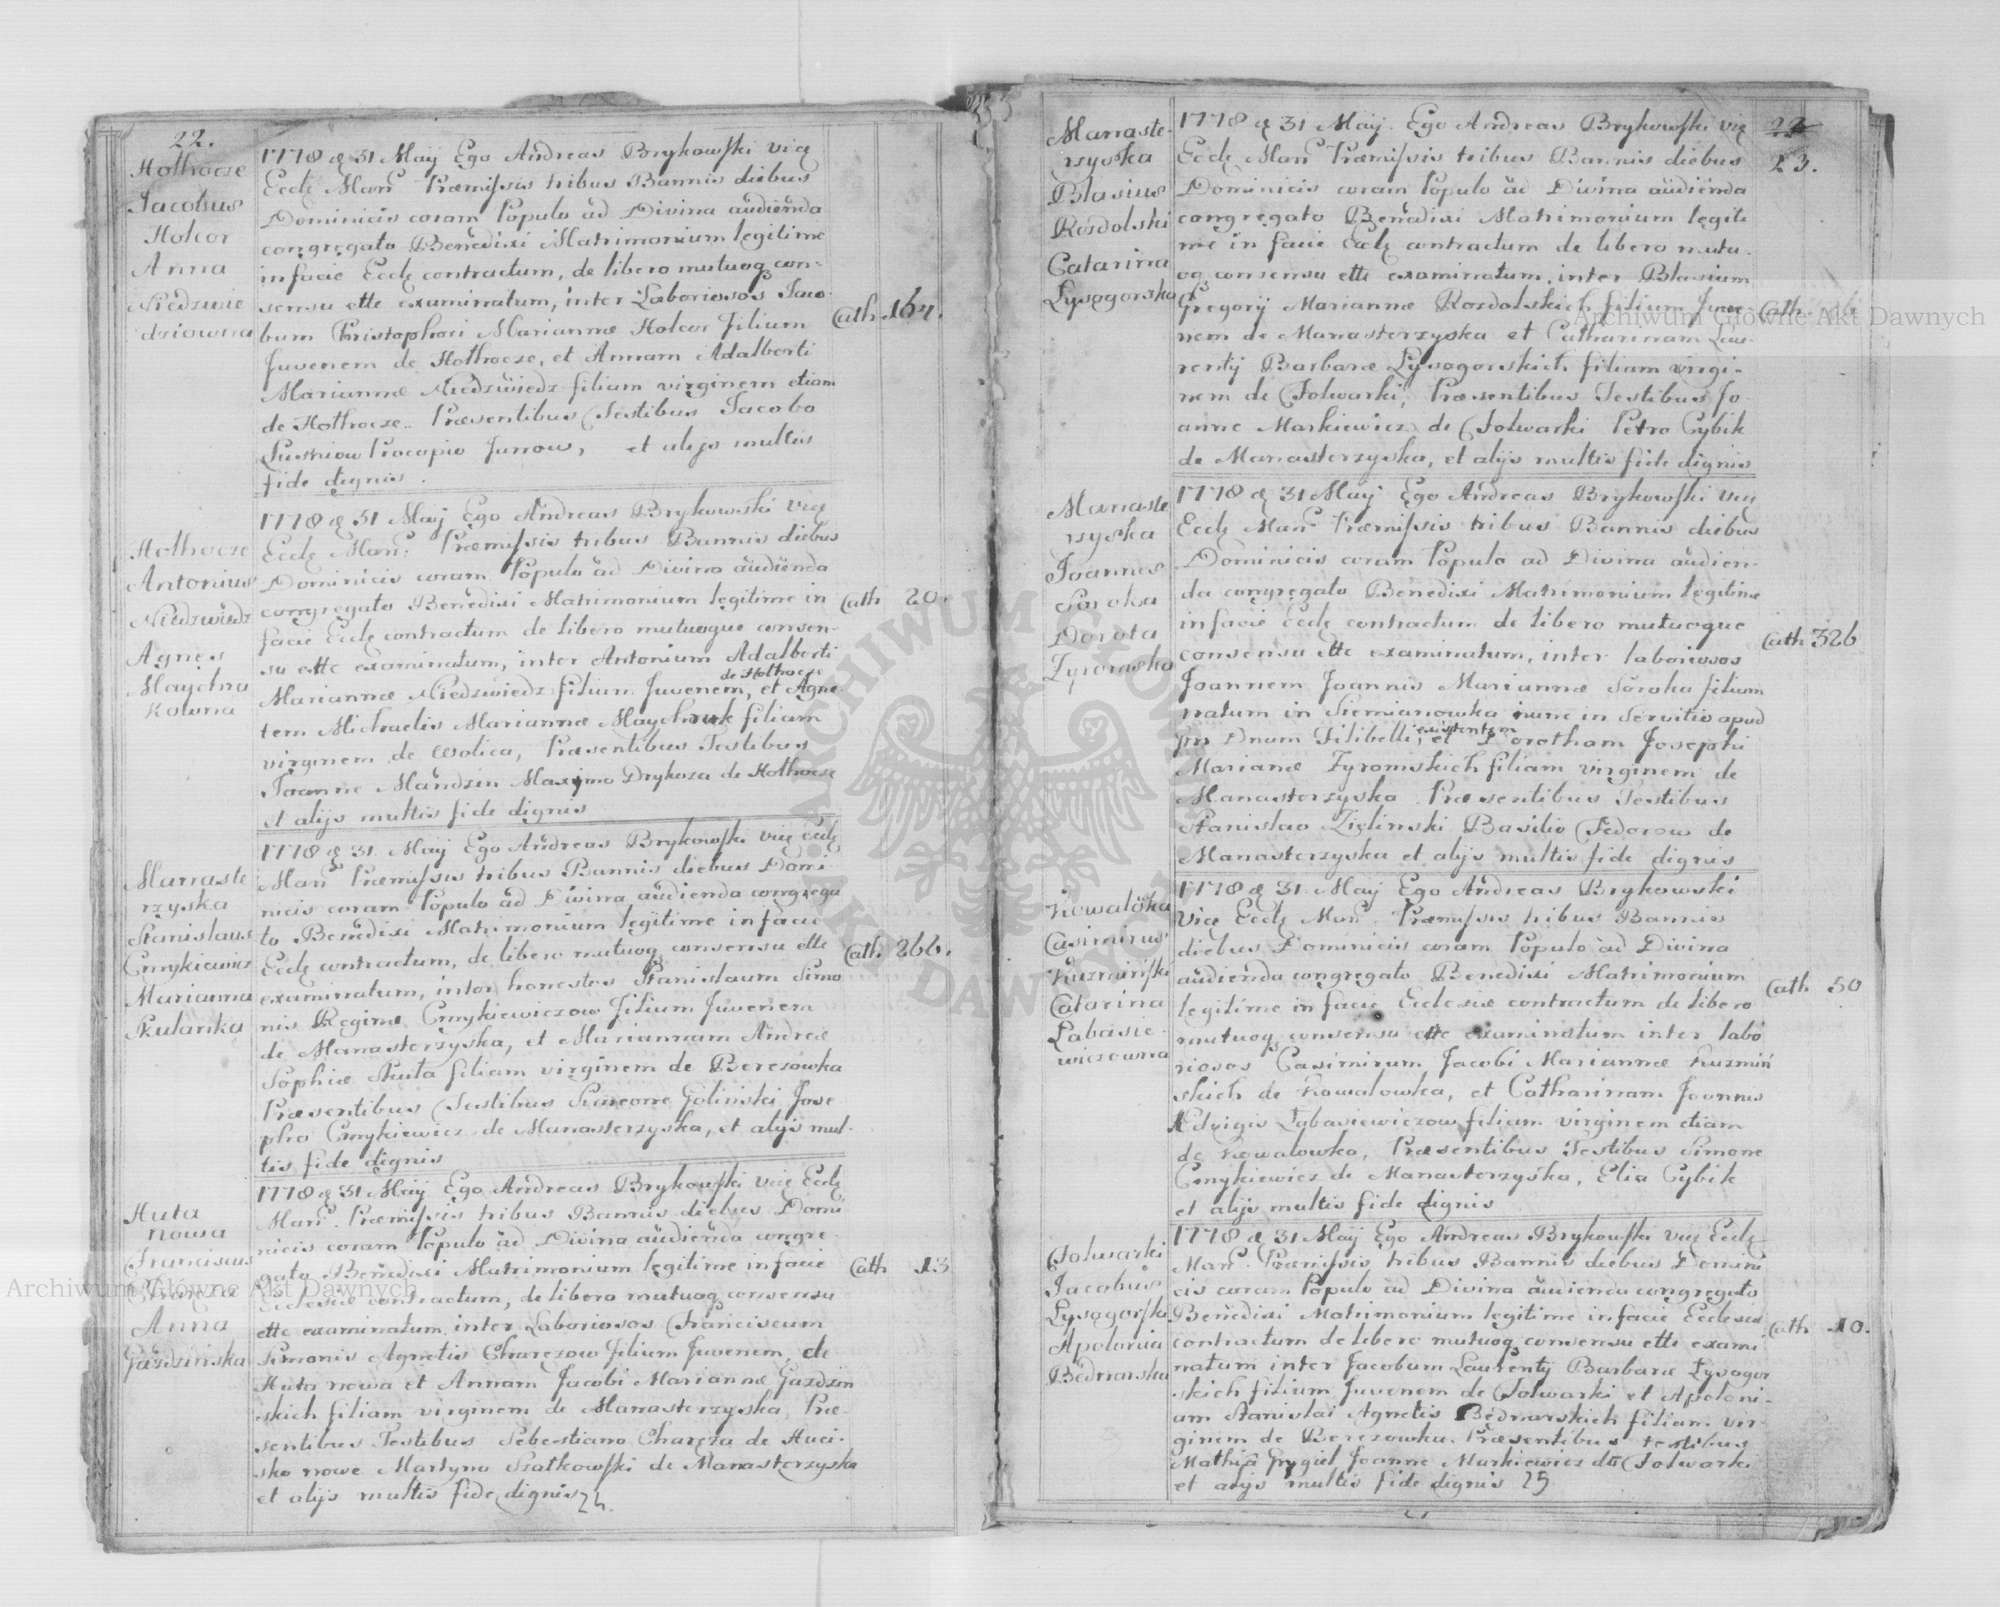 22.
Hothocze
Jacobus
Holcor
Anna
Niedzwie
dziowna
1778 d 31 Maij Ego Andreas Brykowski vice
Eccle Man Præmissis tribus Bannis diebus
Dominicis coram Populo ad Divina audienda
congregato Benedixi Matrimonium legitime
in facie Eccle contractum, de libero mutuoq con-
sensu ette examinatum, inter Laboriosos Jaco-
bum Christophori Mariannæ Holcor filium
Juvenem de Hothocze, et Annam Adalberti
Mariannæ Niedzwiedz filiam virginem etiam
de Hothocze. Præsentibus Testibus Jacobo
Procopio Junow, et alijs multis
fide dignis.
Cath 164.
Hothocze
Antonius
Niedzwiedz
Agnes
Maychru
kowna
1778 d 31 Maij Ego Andreas Brykowski vice
Eccle Man: Præmissis tribus Bannis diebus
Dominicis coram Populo ad Divina audienda
congregato Benedixi Matrimonium legitime in
facie Eccle contractum de libero mutuoque consen-
su ette examinatum, inter Antonium Adalberti
de Hothocze
Mariannæ Niedzwiedz filium Juvenem, et Agne-
tem Michaelis Mariannæ Maychruk filiam
virginem de Wolica, Præsentibus Testibus
Joanne Mandzin Maximo Drykoza de Hothocze
et alijs multis fide dignis
Cath 20.
Manaste
rzyska
Stanislaus
Cmykiewicz
Marianna
Skulanka
1778 d 31 Maij Ego Andreas Brykowski vice Eccle
Man Præmissis tribus Bannis diebus Domi
nicis coram Populo ad Divina audienda congrega
to Benedixi Matrimonium legitime in facie
Eccle contractum, de libero mutuoq consensu ette
examinatum, inter honestos Stanislaum Simo
nis Reginæ Cmykiewiczow filium Juvenem
de Manasterzyska, et Mariannam Andreæ
Sophiæ Skuta filiam virginem de Berezowka
Præsentibus Testibus Simeone Golinski Jose
pho Cmykiewicz de Manasterzyska, et alijs mul-
tis fide dignis
Cath. 266.
Huta
nowa
Franciscus
Chareza
Anna
Gazdzinska
1778 d 31 Maij Ego Andreas Brykowski vice Eccle
Man. Præmissis tribus Bannis diebus Domi
nicis coram Populo ad Divina audienda congre-
gato Benedixi Matrimonium legitime in facie
Ecclesiæ contractum, de libero mutuoq consensu
ette examinatum inter Laboriosos Franciscum
Simonis Agnetis Charezow filium Juvenem, de
Huta nowa et Annam Jacobi Mariannæ Gazdzin
skich filiam virginem de Manasterzyska, Præ-
sentibus Testibus Sebestiano Chareza de Huci-
sko nowe Martyno Szatkowski de Manasterzyska
et alijs multis fide dignis
Cath 13
22
23.
Manaste-
rzyska
Blasius
Rozdolski
Catarina
Lysogorska
1778 d 31 Maij. Ego Andreas Brykowski vice
Eccle Man Præmissis tribus Bannis diebus
Dominicis coram Populo ad Divina audienda
congregato Benedixi Matrimonium legiti
me in facie Eccle contractum de libero mutu-
oq consensu ette examinatum, inter Blasium
Gregorij Mariannæ Rozdolskich filium Juve
nem de Manasterzyska et Catharinam Lau-
rentij Barbaræ Lysogorskich filiam virgi-
nem de Folwarki, Præsentibus Testibus Jo-
anne Markiewicz de Folwarki Petro Cybik
de Manasterzyska, et alijs multis fide dignis
Cath
Manaste
rzyska
Joannes
Soroka
Dorota
Zyromska
1778 d 31 Maij Ego Andreas Brykowski vice
Eccle Man Præmissis tribus Bannis diebus
Dominicis coram Populo ad Divina audien-
da congregato Benedixi Matrimonium legitime
in facie Eccle contractum de libero mutuoque
consensu ette examinatum, inter laboriosos
Joannem Joannis Mariannæ Soroka filium
natum in Siemianowka nunc in Servitio apud
existentem
Dnum Filibelli, et Dorotham Josephi
Marianæ Zyromskich filiam virginem de
Manasterzyska Præsentibus Testibus
Stanislao Zielinski Basilio Fedorow de
Manasterzyska et alijs multis fide dignis
Cath 326
Kowalówka
Casimirus
Kuzminski
Catarina
Labasie-
wiczowna
1778 d 31 Maij Ego Andreas Brykowski
Vice Eccle Man. Præmissis tribus Bannis
diebus Dominicis coram Populo ad Divina
audienda congregato Benedixi Matrimonium
legitime in facie Ecclesiæ contractum de libero
mutuoq consensu ette examinatum inter labo
riosos Casimirum Jacobi Mariannæ Kuzmin
skich de Kowalowka, et Catharinam Joannis
Edvigis Labasiewiczow filiam virginem etiam
de Kowalowka, Præsentibus Testibus Simone
Cmykiewicz de Manasterzyska, Elia Cybik
et alijs multis fide dignis
Cath 50
Folwarki
Jacobus
Lysogorski
Apolonia
Bednarska
1778 d 31 Maij Ego Andreas Brykowski vice Eccle
Man. Præmissis tribus Bannis diebus Domini
cis coram Populo ad Divina audienda congregato
Benedixi Matrimonium legitime in facie Ecclesiæ
contractum de libero mutuoq consensu ette exami
natum inter Jacobum Laurentij Barbaræ Lysogor
skich filium Juvenem de Folwarki et Apoloni-
am Stanislai Agnetis Bednarskich filiam vir-
ginem de Berezowka. Præsentibus testibus
Mathia Grygiel Joanne Markiewicz de Folwarki
et alijs multis fide dignis 25
Cath 10.
Archiwum Główne Akt Dawnych
Archiwum Główne Akt Dawnych
ARCHIWUM GŁÓWNE AKT DAWNYCH